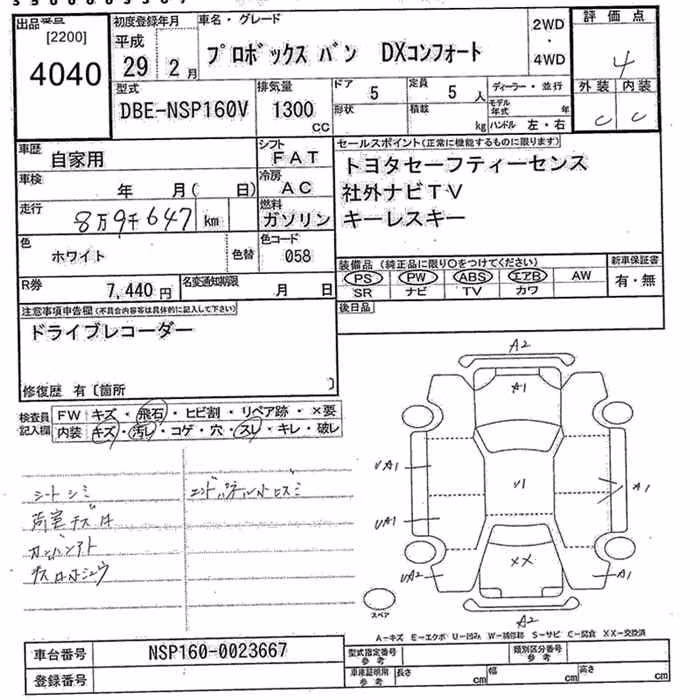 出品番号
[2200]
4040
初度登録年月
平成
29年 2月
車名・グレード
プロボックス バン DXコンフォート
2WD
・
4WD
評価点
4
外装 内装
C C
型式
DBE-NSP160V
排気量
1300
cc
ドア 5
形状
定員 5人
積載 kg
ディーラー・並行
モデル年式 年
ハンドル 左・右
車歴
自家用
シフト
FAT
車検
年 月( 日)
冷房
AC
走行
8万9千647 km
燃料
ガソリン
色
ホワイト
色替
色コード
058
R券
7,440円
名変通知期限
月 日
セールスポイント(正常に機能するものに限ります)
トヨタセーフティーセンス
社外ナビTV
キーレスキー
装備品(純正品に限り○をつけてください)
PS PW ABS エアB AW
SR ナビ TV カワ
新車保証書
有・無
後日品
注意事項申告欄(不具合内容等は具体的に記入して下さい)
ドライブレコーダー
修復歴 有〔箇所 〕
検査員記入欄
FW キズ・飛石・ヒビ割・リペア跡・×要
内装 キズ・汚レ・コゲ・穴・スレ・キレ・破レ
シートシミ
荷室キズ
A2
A1
UA1
U1
A1
UA1
XX
UA2
A1
A2
スペア
A-キズ E-エクボ U-凹み W-補修跡 S-サビ C-腐食 XX-交換済
車台番号
NSP160-0023667
登録番号
型式指定番号 参考
類別区分番号 参考
車庫証明用 参考
長さ cm
幅 cm
高さ cm